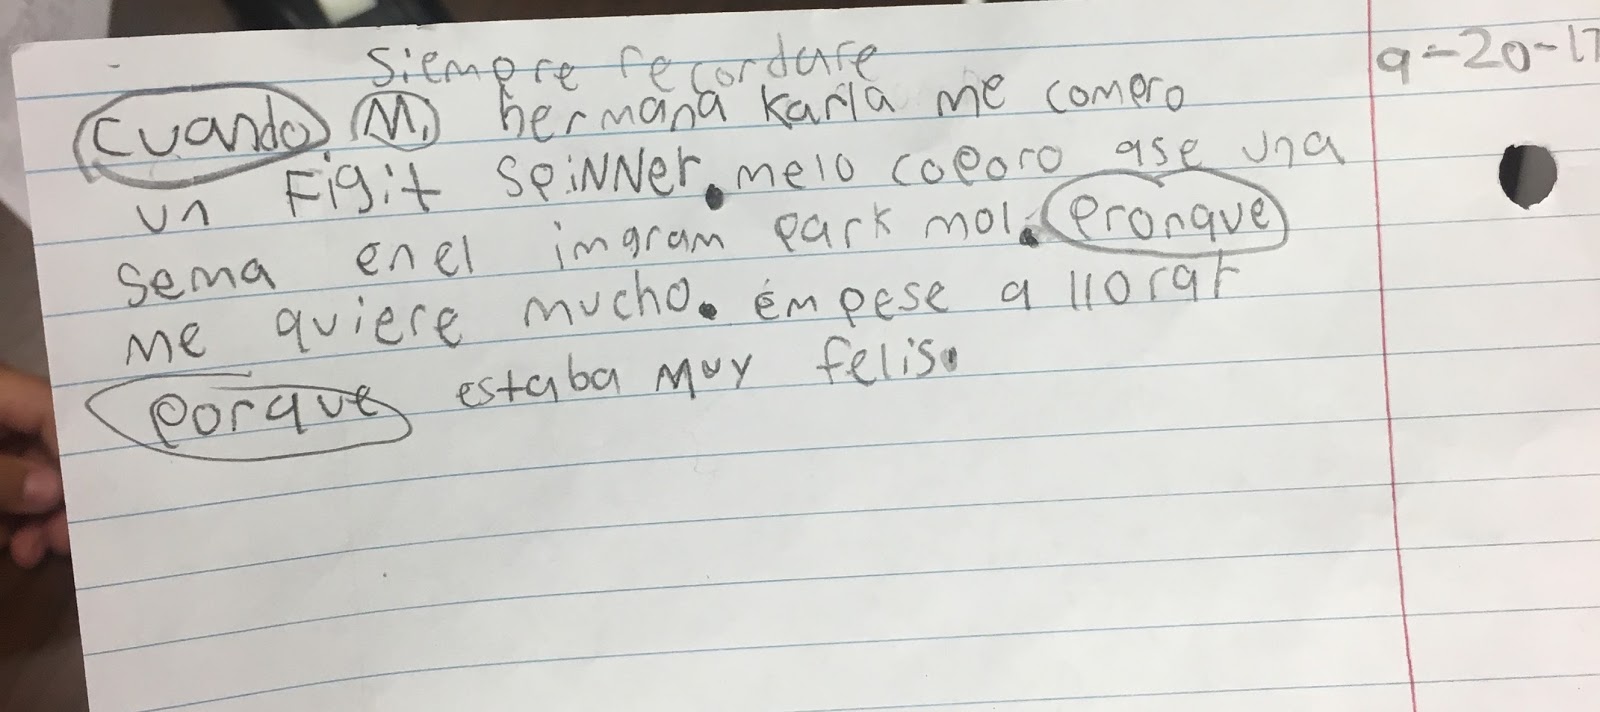 siempre recordare
9-20-17
Cuando Mi hermana karla me compro
un Figit SpiNNer. melo coporo ase una
sema en el imgram park mol. pronque
me quiere mucho. émpese a llorar
porque estaba muy felis.